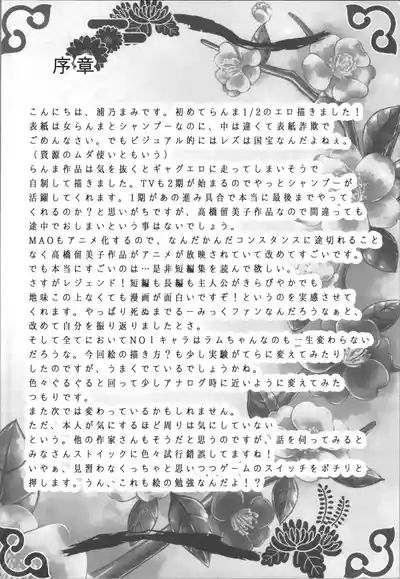 序章
こんにちは、浦乃まみです。初めてらんま1/2のエロ描きました！
表紙は女らんまとシャンプーなのに、中は違くて表紙詐欺で
ごめんなさい。でもビジュアル的にはレズは国宝なんだよねぇ。
（資源のムダ使いともいう）
らんま作品は気を抜くとギャグエロに走ってしまいそうで
自制して描きました。TVも2期が始まるのでやっとシャンプーが
活躍してくれます。1期があの進み具合で本当に最後までやって
くれるのか？と思いがちですが、高橋留美子作品なので間違っても
途中でおしまいという事はないでしょう。
MAOもアニメ化するので、なんだかんだコンスタンスに途切れること
なく高橋留美子作品がアニメが放映されていて改めてすごいです。
でも本当にすごいのは…是非短編集を読んで欲しい。
さすがレジェンド！短編も長編も主人公がきらびやかでも
地味この上なくても漫画が面白いですぞ！というのを実感させて
くれます。やっぱり死ぬまでるーみっくファンなんだろうなぁと、
改めて自分を振り返りましたとさ。
そして全てにおいてNO1キャラはラムちゃんなのも一生変わらない
だろうな。今回絵の描き方？も少し実験がてらに変えてみたり
したのですが、うまくでているでしょうかね。
色々ぐるぐると回って少しアナログ時に近いように変えてみた
つもりです。
また次では変わっているかもしれません。
ただ、本人が気にするほど周りは気にしていない
という。他の作家さんもそうだと思うのですが、話を伺ってみると
みなさんストイックに色々試行錯誤してますね！
いやぁ、見習わなくっちゃと思いつつゲームのスイッチをポチリと
押します。うん、これも絵の勉強なんだよ！？